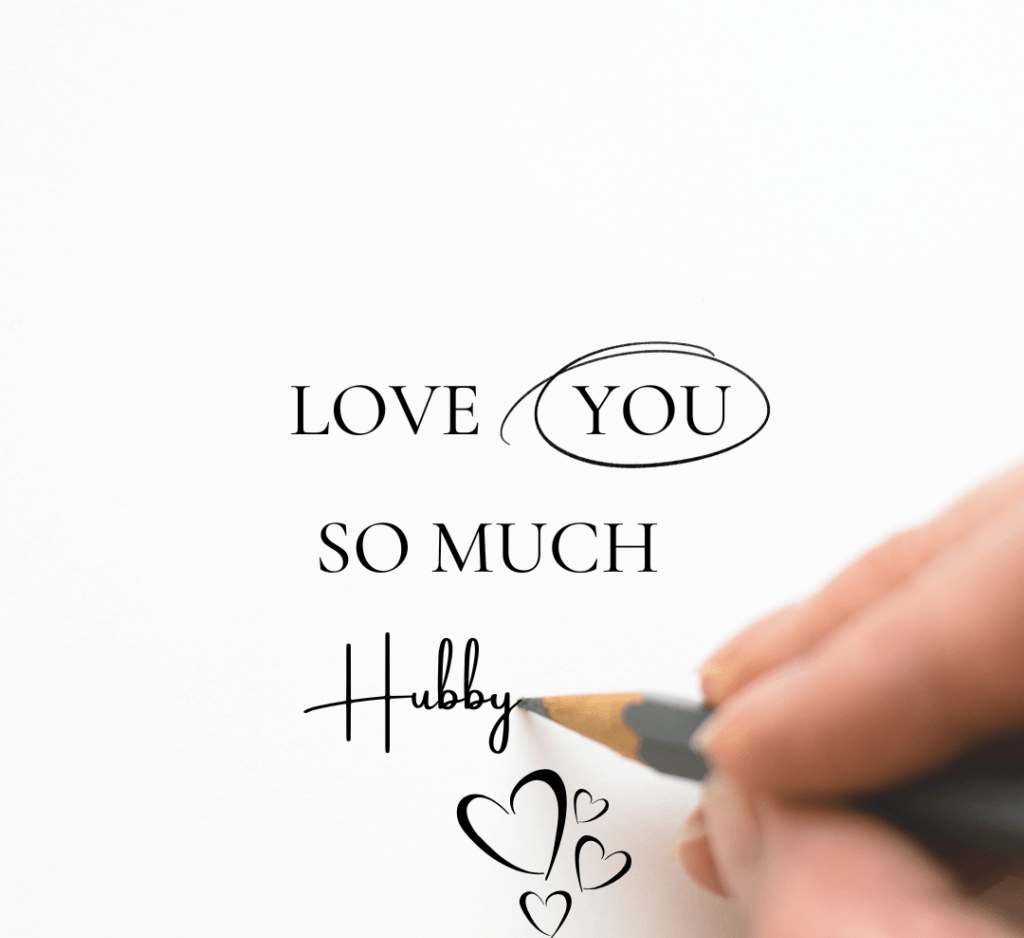 LOVE YOU
SO MUCH
Hubby